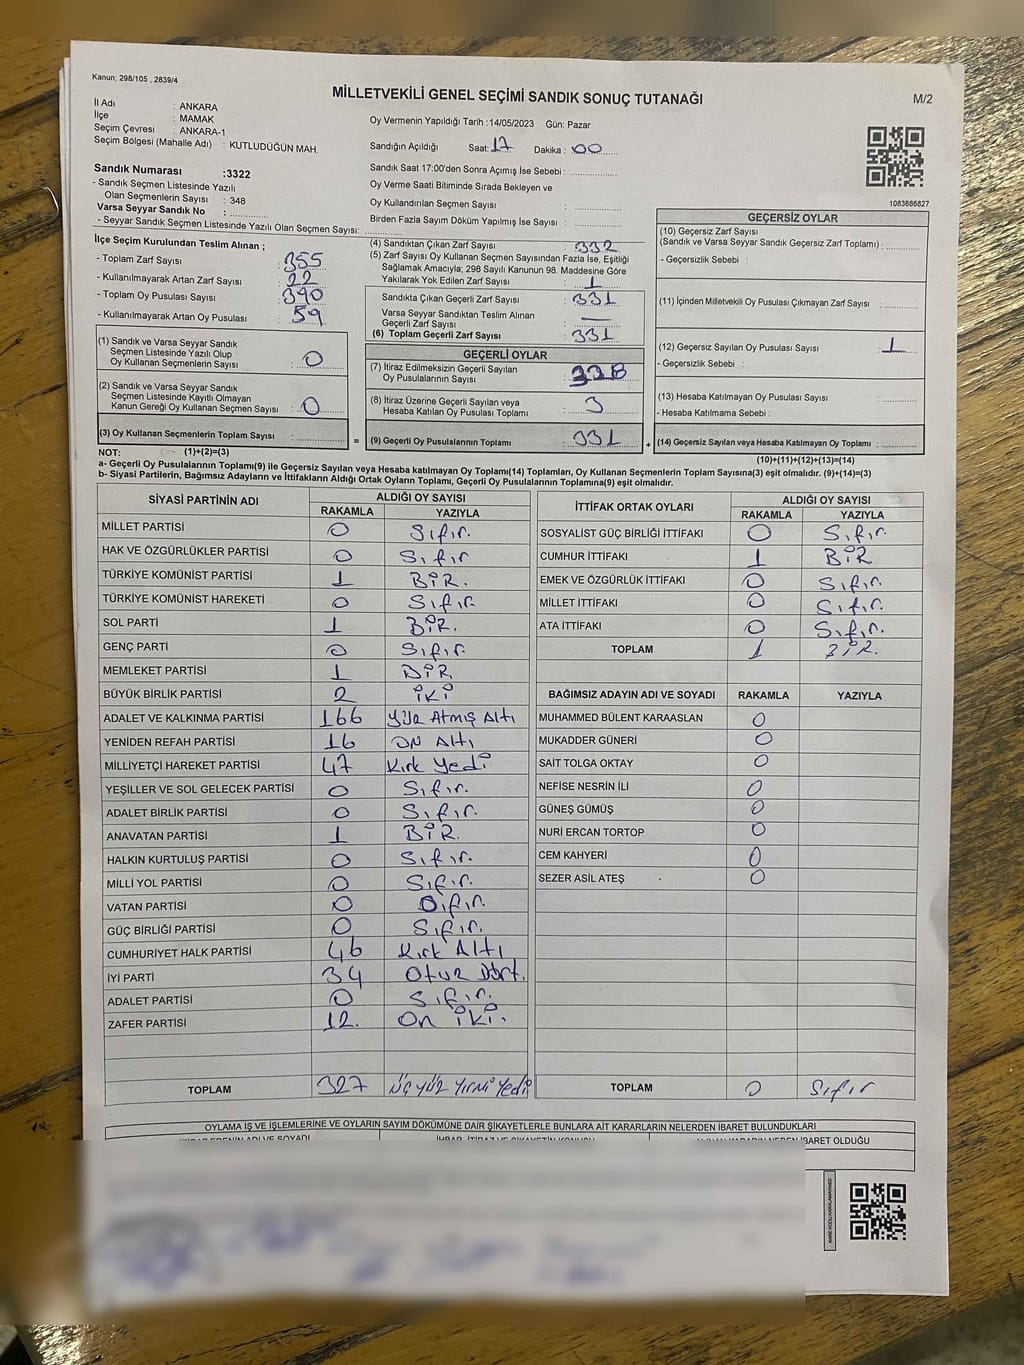 Kanun; 298/105 , 2839/4
MİLLETVEKİLİ GENEL SEÇİMİ SANDIK SONUÇ TUTANAĞI
M/2
İl Adı : ANKARA
İlçe : MAMAK
Seçim Çevresi : ANKARA-1
Seçim Bölgesi (Mahalle Adı) : KUTLUDÜĞÜN MAH.
Oy Vermenin Yapıldığı Tarih :14/05/2023 Gün: Pazar
Sandığın Açıldığı Saat: 17 Dakika : 00
Sandık Saat 17:00'den Sonra Açımış İse Sebebi :
Oy Verme Saati Bitiminde Sırada Bekleyen ve
Oy Kullandırılan Seçmen Sayısı :
Birden Fazla Sayım Döküm Yapılmış İse Sayısı :
1083686827
Sandık Numarası :3322
- Sandık Seçmen Listesinde Yazılı
Olan Seçmenlerin Sayısı : 348
Varsa Seyyar Sandık No :
- Seyyar Sandık Seçmen Listesinde Yazılı Olan Seçmen Sayısı:
İlçe Seçim Kurulundan Teslim Alınan ;
- Toplam Zarf Sayısı : 355
- Kullanılmayarak Artan Zarf Sayısı : 22
- Toplam Oy Pusulası Sayısı : 390
- Kullanılmayarak Artan Oy Pusulası : 59
(1) Sandık ve Varsa Seyyar Sandık
Seçmen Listesinde Yazılı Olup
Oy Kullanan Seçmenlerin Sayısı : 0
(2) Sandık ve Varsa Seyyar Sandık
Seçmen Listesinde Kayıtlı Olmayan
Kanun Gereği Oy Kullanan Seçmen Sayısı : 0
(3) Oy Kullanan Seçmenlerin Toplam Sayısı :
(4) Sandıktan Çıkan Zarf Sayısı : 332
(5) Zarf Sayısı Oy Kullanan Seçmen Sayısından Fazla İse, Eşitliği
Sağlamak Amacıyla; 298 Sayılı Kanunun 98. Maddesine Göre
Yakılarak Yok Edilen Zarf Sayısı : 1
Sandıkta Çıkan Geçerli Zarf Sayısı : 331
Varsa Seyyar Sandıktan Teslim Alınan
Geçerli Zarf Sayısı : —
(6) Toplam Geçerli Zarf Sayısı : 331
GEÇERLİ OYLAR
(7) İtiraz Edilmeksizin Geçerli Sayılan
Oy Pusulalarının Sayısı : 328
(8) İtiraz Üzerine Geçerli Sayılan veya
Hesaba Katılan Oy Pusulası Toplamı : 3
= (9) Geçerli Oy Pusulalarının Toplamı : 331 +
GEÇERSİZ OYLAR
(10) Geçersiz Zarf Sayısı
(Sandık ve Varsa Seyyar Sandık Geçersiz Zarf Toplamı) :
- Geçersizlik Sebebi :
(11) İçinden Milletvekili Oy Pusulası Çıkmayan Zarf Sayısı :
(12) Geçersiz Sayılan Oy Pusulası Sayısı : 1
- Geçersizlik Sebebi :
(13) Hesaba Katılmayan Oy Pusulası Sayısı :
- Hesaba Katılmama Sebebi :
(14) Geçersiz Sayılan veya Hesaba Katılmayan Oy Toplamı :
NOT: (1)+(2)=(3)
(10)+(11)+(12)+(13)=(14)
a- Geçerli Oy Pusulalarının Toplamı(9) ile Geçersiz Sayılan veya Hesaba katılmayan Oy Toplamı(14) Toplamları, Oy Kullanan Seçmenlerin Toplam Sayısına(3) eşit olmalıdır. (9)+(14)=(3)
b- Siyasi Partilerin, Bağımsız Adayların ve İttifakların Aldığı Ortak Oyların Toplamı, Geçerli Oy Pusulalarının Toplamına(9) eşit olmalıdır.
SİYASİ PARTİNİN ADI ALDIĞI OY SAYISI
RAKAMLA YAZIYLA
MİLLET PARTİSİ 0 Sıfır.
HAK VE ÖZGÜRLÜKLER PARTİSİ 0 Sıfır
TÜRKİYE KOMÜNİST PARTİSİ 1 BİR.
TÜRKİYE KOMÜNİST HAREKETİ 0 Sıfır
SOL PARTİ 1 BİR.
GENÇ PARTİ 0 Sıfır.
MEMLEKET PARTİSİ 1 BİR
BÜYÜK BİRLİK PARTİSİ 2 İKİ
ADALET VE KALKINMA PARTİSİ 166 Yüz Atmış Altı
YENİDEN REFAH PARTİSİ 16 ON Altı
MİLLİYETÇİ HAREKET PARTİSİ 47 Kırk Yedi
YEŞİLLER VE SOL GELECEK PARTİSİ 0 Sıfır.
ADALET BİRLİK PARTİSİ 0 Sıfır.
ANAVATAN PARTİSİ 1 BİR.
HALKIN KURTULUŞ PARTİSİ 0 Sıfır.
MİLLİ YOL PARTİSİ 0 Sıfır.
VATAN PARTİSİ 0 Sıfır.
GÜÇ BİRLİĞİ PARTİSİ 0 Sıfır.
CUMHURİYET HALK PARTİSİ 46 Kırk Altı
İYİ PARTİ 34 Otuz Dört.
ADALET PARTİSİ 0 Sıfır.
ZAFER PARTİSİ 12. On iki.
TOPLAM 327 Üçyüz Yirmi Yedi
İTTİFAK ORTAK OYLARI ALDIĞI OY SAYISI
RAKAMLA YAZIYLA
SOSYALİST GÜÇ BİRLİĞİ İTTİFAKI 0 Sıfır.
CUMHUR İTTİFAKI 1 BİR
EMEK VE ÖZGÜRLÜK İTTİFAKI 0 Sıfır.
MİLLET İTTİFAKI 0 Sıfır.
ATA İTTİFAKI 0 Sıfır.
TOPLAM 1 BİR.
BAĞIMSIZ ADAYIN ADI VE SOYADI RAKAMLA YAZIYLA
MUHAMMED BÜLENT KARAASLAN 0
MUKADDER GÜNERİ 0
SAİT TOLGA OKTAY 0
NEFİSE NESRİN İLİ 0
GÜNEŞ GÜMÜŞ 0
NURİ ERCAN TORTOP 0
CEM KAHYERİ 0
SEZER ASİL ATEŞ 0
TOPLAM 0 Sıfır
OYLAMA İŞ VE İŞLEMLERİNE VE OYLARIN SAYIM DÖKÜMÜNE DAİR ŞİKAYETLERLE BUNLARA AİT KARARLARIN NELERDEN İBARET BULUNDUKLARI
İBARET OLDUĞU